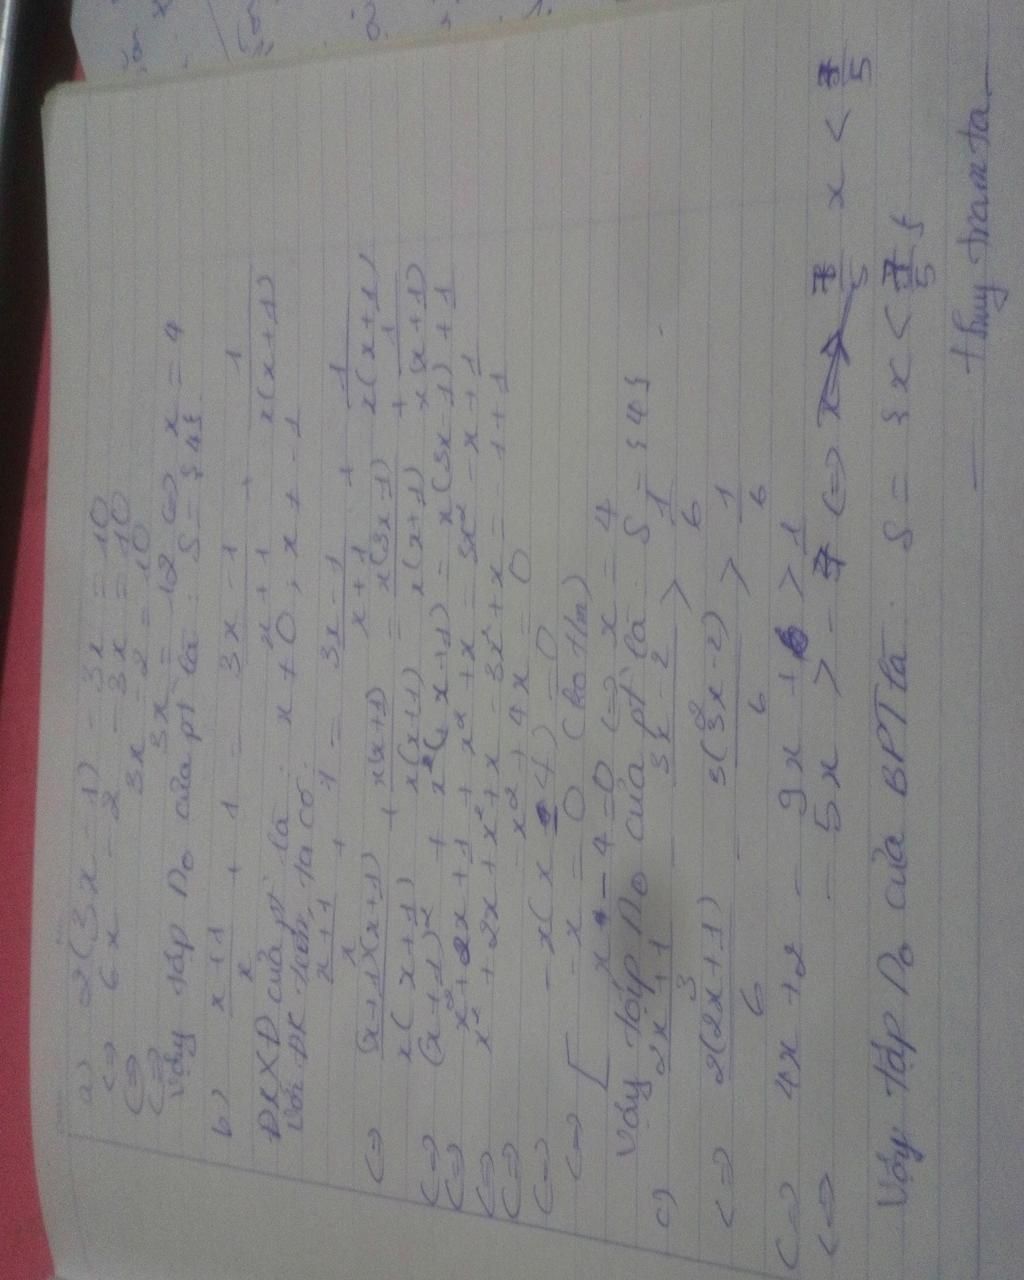 a) 2(3x - 1) - 3x = 10
<=> 6x - 2 - 3x = 10
<=> 3x - 2 = 10
<=> 3x = 12 <=> x = 4
Vậy tập no của pt là: S = {4}.
b) x+1/x + 1 = 3x-1/x+1 + 1/x(x+1)
ĐKXĐ của pt là: x ≠ 0; x ≠ -1
Với ĐK trên, ta có:
x+1/x + 1 = 3x-1/x+1 + 1/x(x+1)
<=> (x+1)(x+1)/x(x+1) + x(x+1)/x(x+1) = x(3x-1)/x(x+1) + 1/x(x+1)
<=> (x+1)² + x(x+1) = x(3x-1) + 1
<=> x² + 2x + 1 + x² + x = 3x² - x + 1
<=> x² + 2x + x² + x - 3x² + x = -1 + 1
<=> -x² + 4x = 0
<=> -x(x - 4) = 0
<=> [ -x = 0 (ko t/m)
x - 4 = 0 <=> x = 4
Vậy tập no của pt là: S = {4}
c) 2x+1/3 - 3x-2/2 > 1/6
<=> 2(2x+1)/6 - 3(3x-2)/6 > 1/6
<=> 4x + 2 - 9x + 6 > 1
<=> -5x > -7 <=> x < 7/5
Vậy tập no của BPT là: S = {x < 7/5}
- thuy tramta -